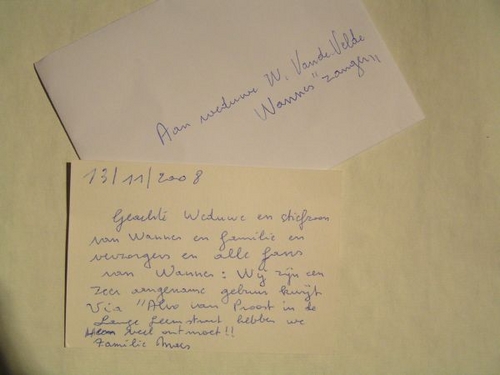 Aan weduwe W. VandeVelde
Wannes" zanger,,
13/11/2008
Geachte Weduwe en stiefzoon
van Wannes en familie en
verzorgers en alle fans
van Wannes: Wij zijn een
zeer aangename gebuur kwijt
Via "Alvo van Proost in de
Lange Leemstraat hebben we
Hem veel ontmoet!!
Familie